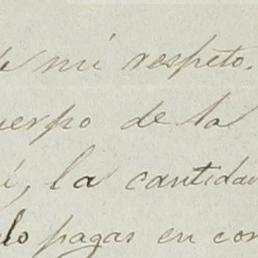 de mi respeto.
uerpo de la
í, la cantidad
lo pagas en con